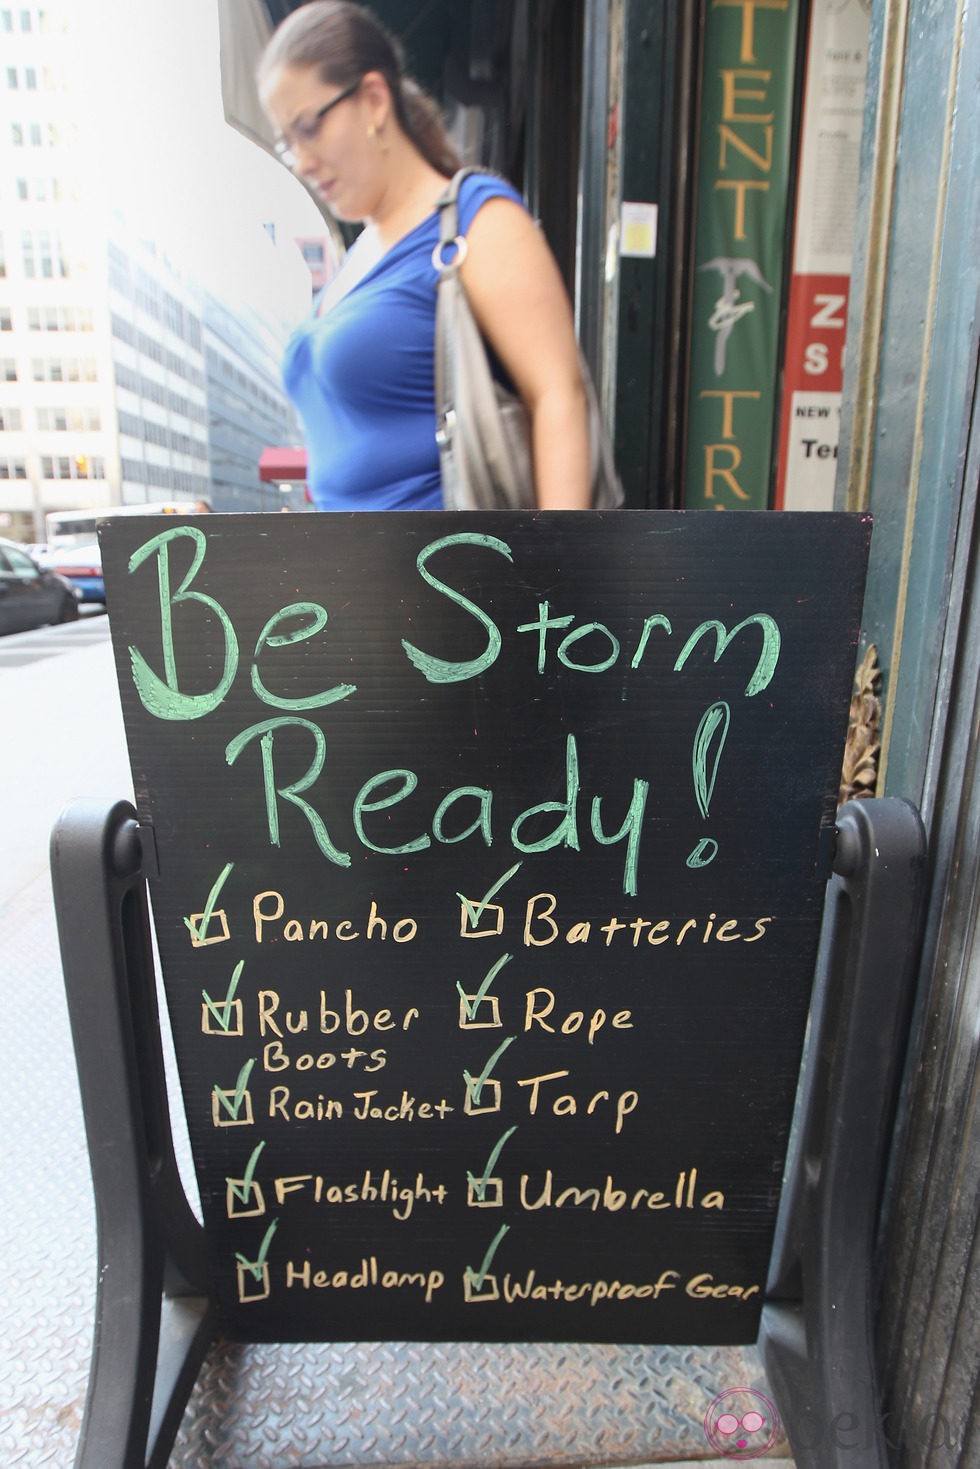 TENT
&
TR
Z
S
NEW
Be Storm
Ready!
Pancho
Batteries
Rubber
Boots
Rope
Rain Jacket
Tarp
Flashlight
Umbrella
Headlamp
Waterproof Gear